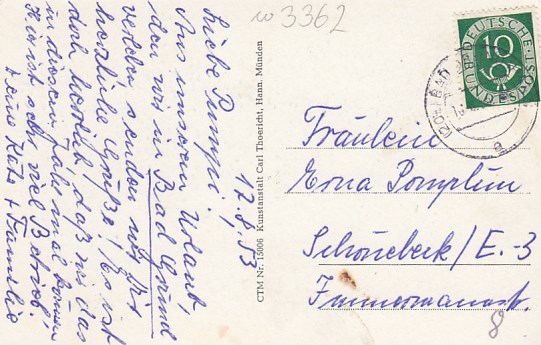 W 3362
17.8.53
Liebe Pumpi!
Aus unserem Urlaub,
den wir in Bad Grund
verleben senden wir Dir
herzliche Grüße! Es ist
doch herrlich, daß wir das
in diesem Jahr mal können
Hier ist sehr viel Betrieb.
Deine Käte + Familie
CTM Nr. 15006 Kunstanstalt Carl Thoericht, Hann. Münden
DEUTSCHE
BUNDESPOST
10
BAD
a
Fräulein
Erna Pomplun
Schönebeck/E.-3
Immermannstr.
8